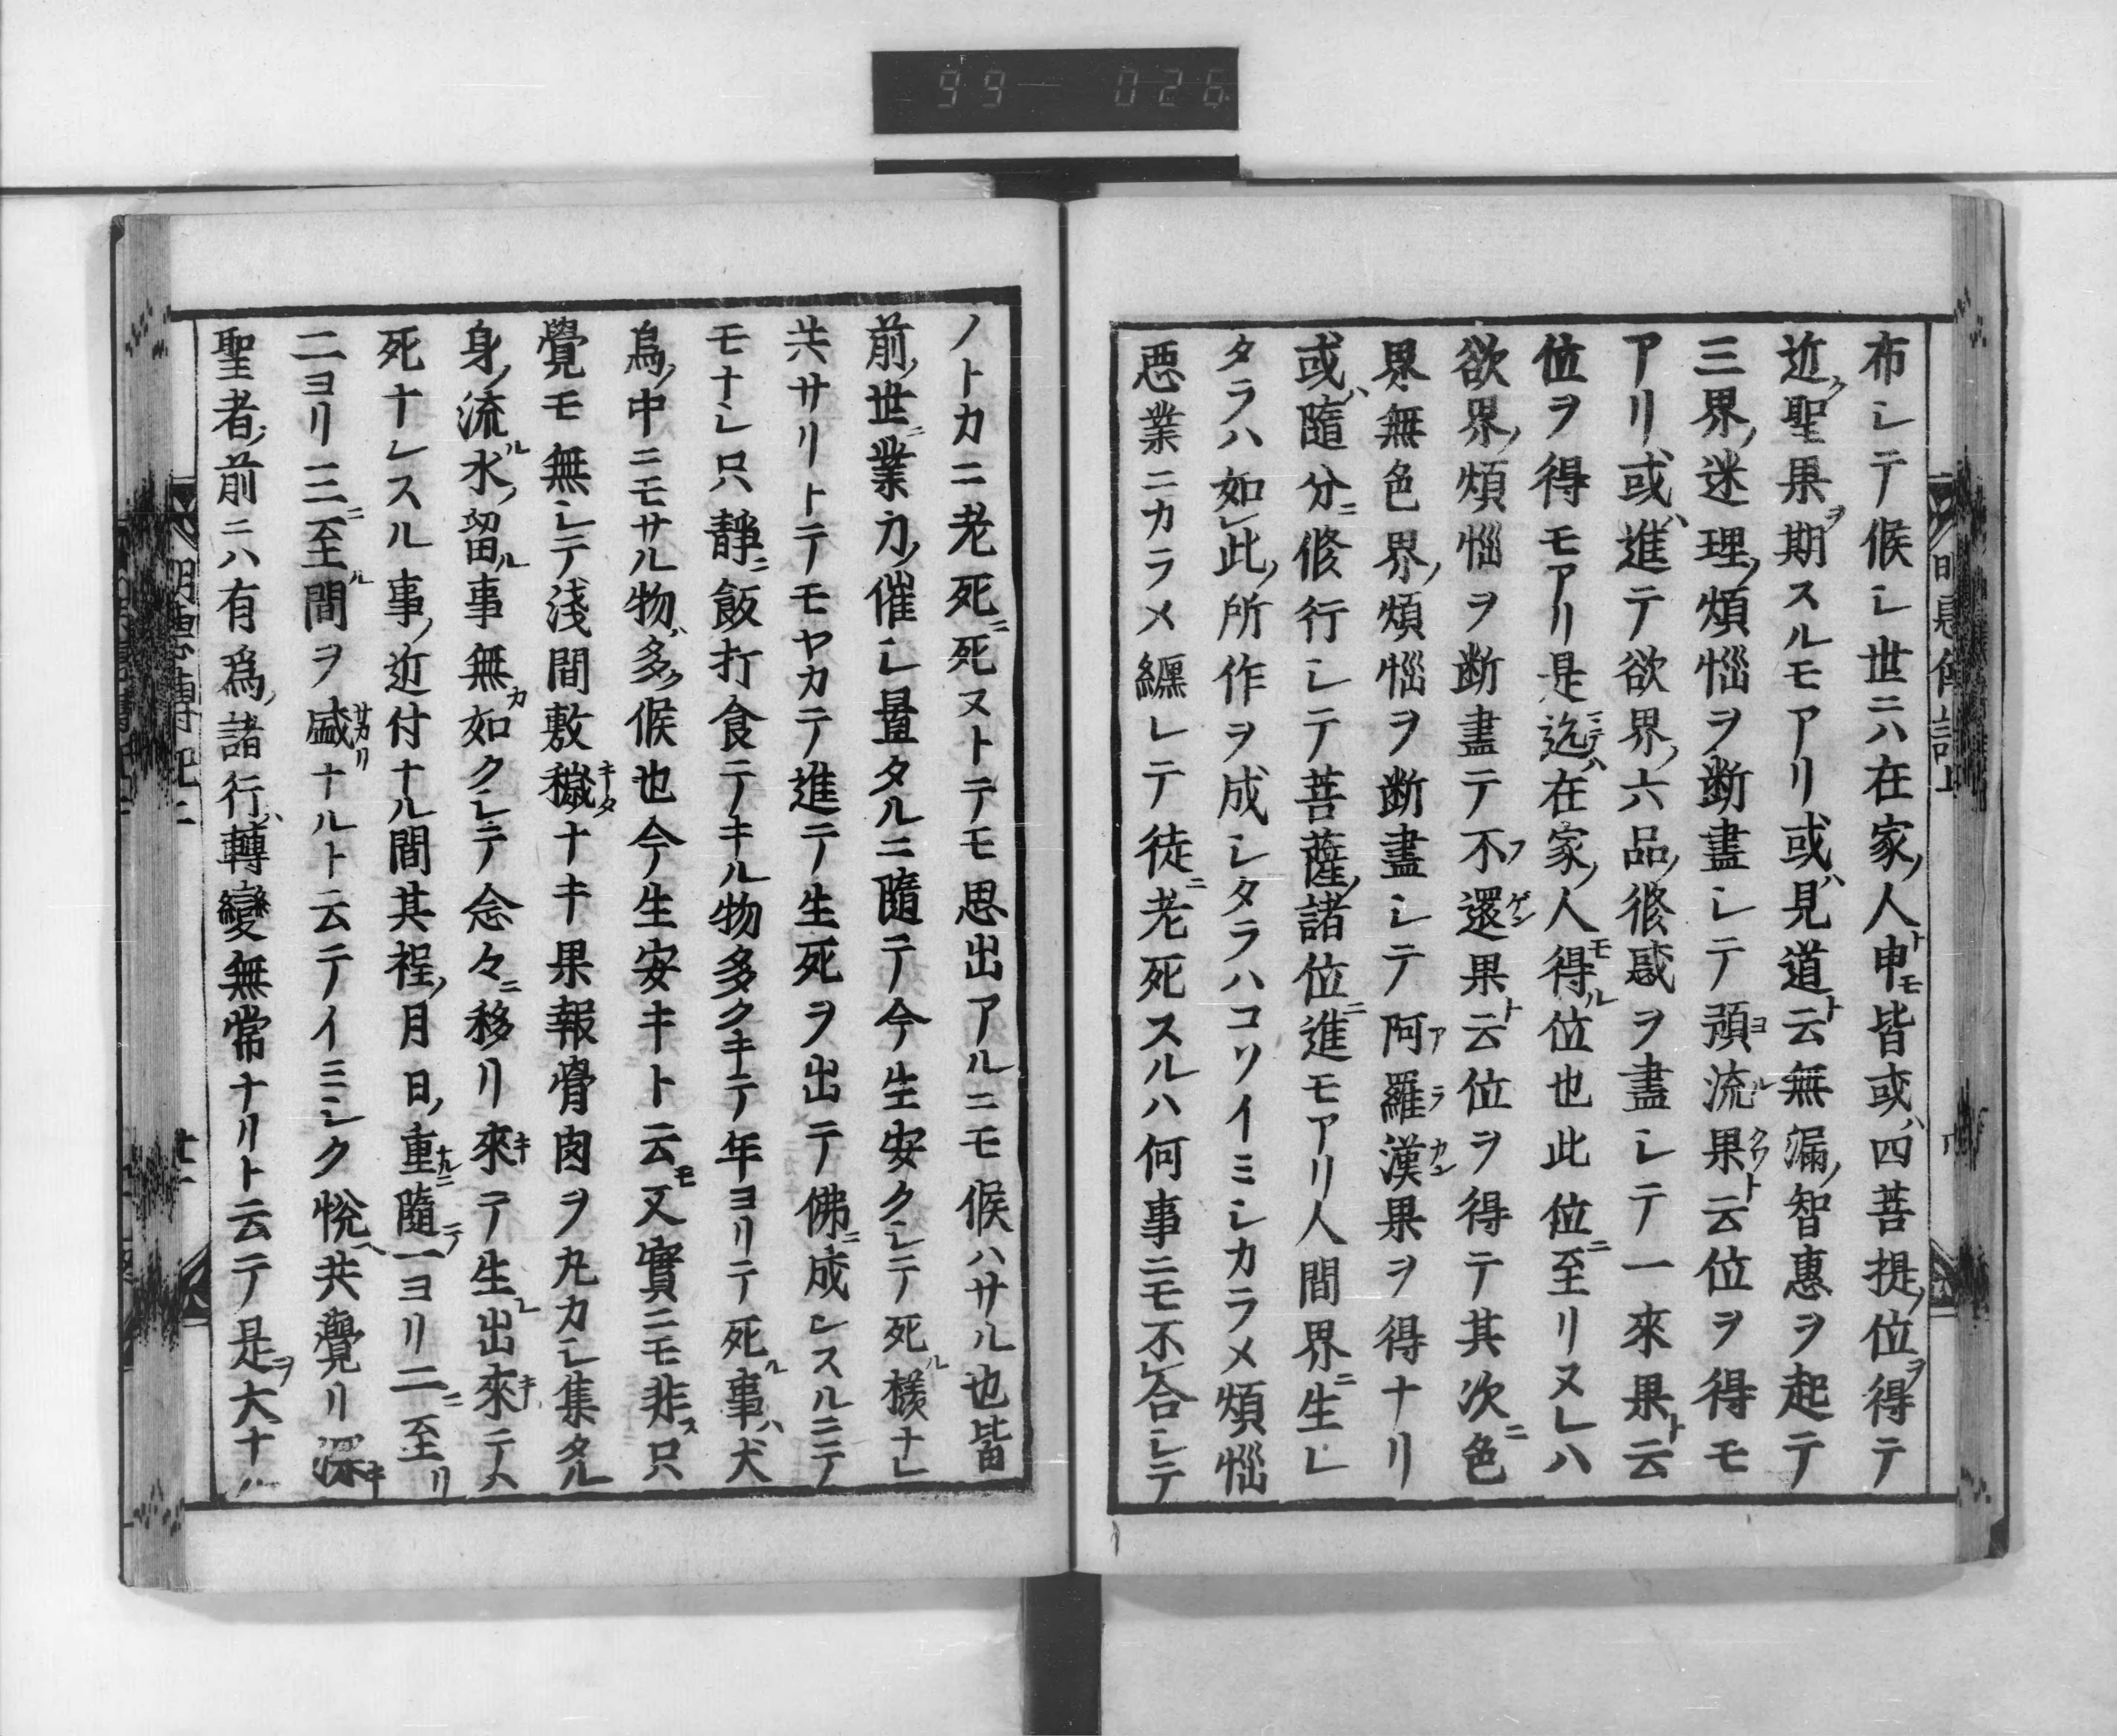 99 026
布シテ候シ世ニハ在家ノ人ト申モ皆或ハ四菩提ノ位ヲ得テ
近ク聖果ヲ期スルモアリ或ハ見道ト云無漏ノ智惠ヲ起テ
三界ノ迷理ノ煩惱ヲ断盡シテ預ヨ流ル果クワト云位ヲ得モ
アリ或ハ進テ欲界ノ六品ノ修惑ヲ盡シテ一來果ト云
位ヲ得モアリ是迄ニテハ在家ノ人モ得ル位也此位ニ至リヌレハ
欲界ノ煩惱ヲ断盡テ不フ還ゲン果ト云位ヲ得テ其次ニ色
界無色界ノ煩惱ヲ断盡シテ阿ア羅ラ漢カン果ヲ得ナリ
或ハ隨分ニ修行シテ菩薩ノ諸位ニ進モアリ人間界ニ生レ
タラハ如レ此ノ所作ヲ成シタラハコソイミシカラメ煩惱
悪業ニカラメ纏レテ徒ニ老死スルハ何事ニモ不レ合シテ
ノトカニ老死ニ死ヌトテモ思出アルニモ候ハサル也皆
前ノ世ニ業力ノ催シ置タルニ隨テ今生安クシテ死ル様ナレ
共サリトテモヤカテ進テ生死ヲ出テ佛ニ成レスルニテ
モナシ只静ニ飯打食テキル物多クキテ年ヨリテ死ル事ハ犬
烏ノ中ニモサル物ノ多ク候也今生安キト云モ又實ニモ非ス只
覺モ無シテ淺間敷穢キタナキ果報骨肉ヲ丸カシ集タル
身ノ流ル水ノ留ル事無カ如クシテ念々ニ移リ來キテ生レ出來キテハ
死ナレスル事ノ近付ナル間其程ノ月日ノ重ナルニ隨テ一ヨリ二ニ至リ
二ヨリ三ニ至ル間ヲ盛サカリナルト云テイミシク悦ヘ共覺リ深キ
聖者ノ前ニハ有為ノ諸行ハ轉變無常ナリト云テ是ヲ大ナル